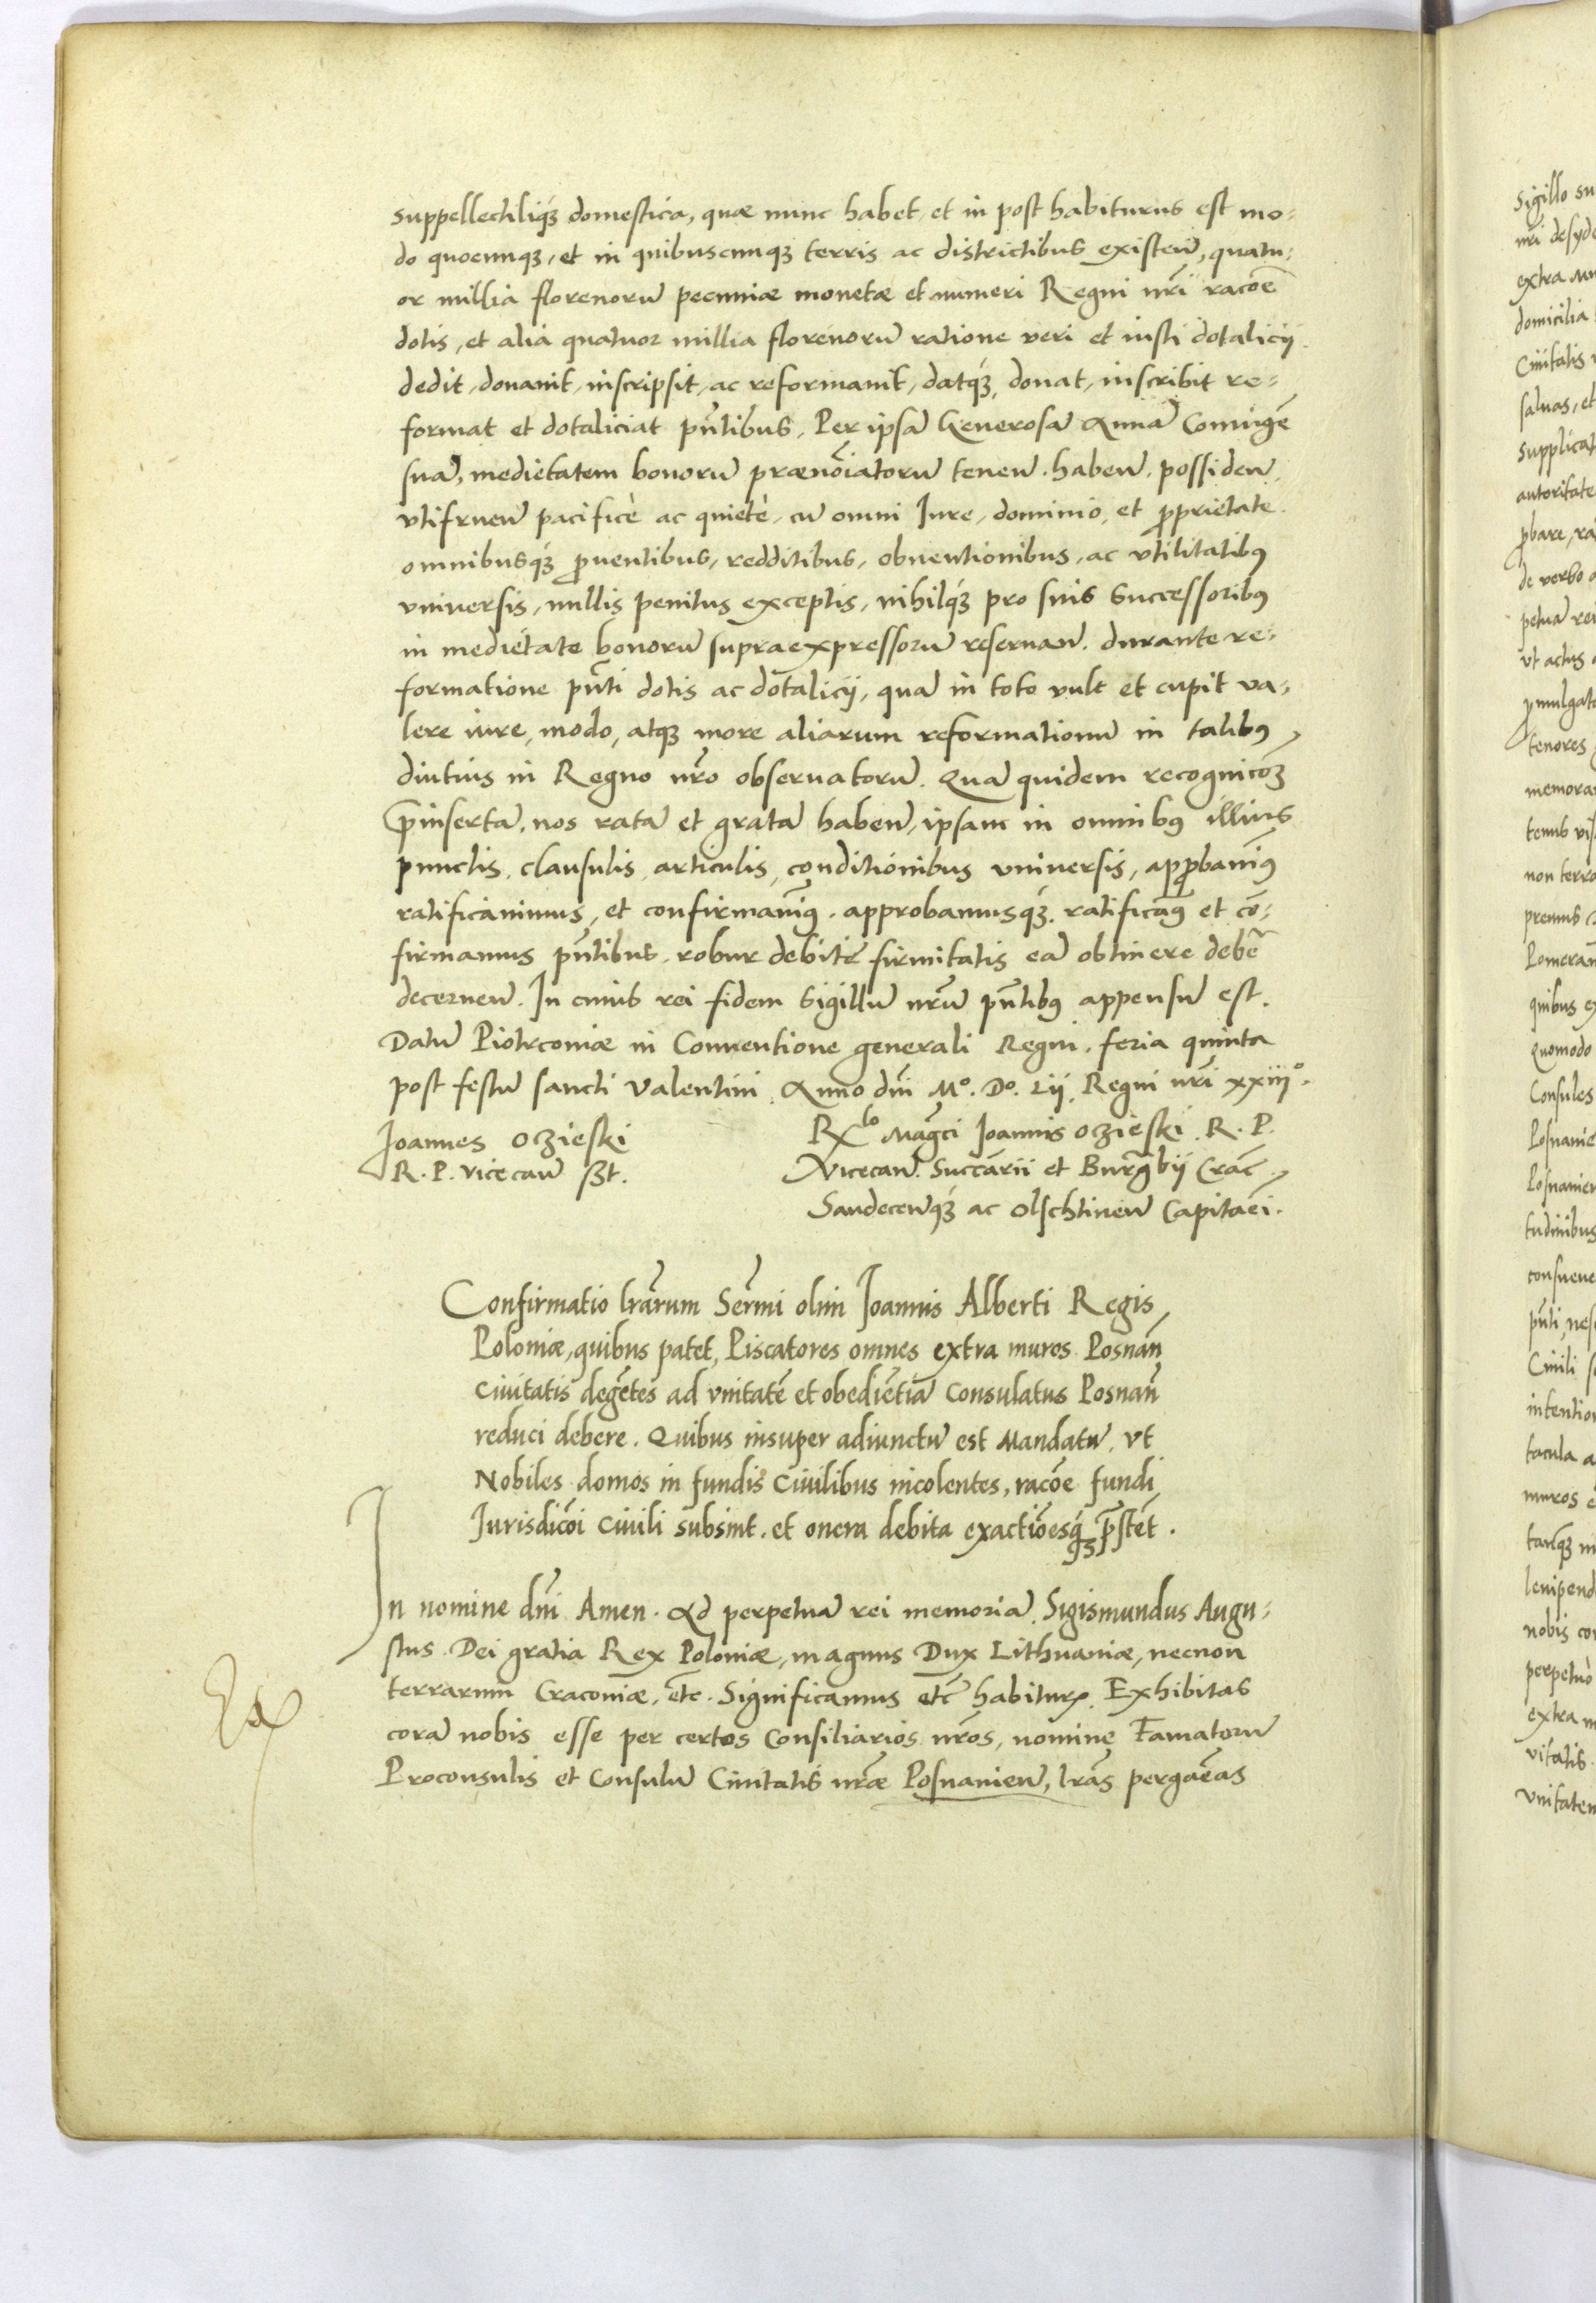 suppellectiliq́ʒ domestica, quæ nunc habet et in post habiturus est mo-
do quocunqʒ, et in quibuscunqʒ terris ac districtibus existen̄, quatu-
or millia florenorū pecuniæ monetæ et numeri Regni nr̄i racōe
dotis, et alia quatuor millia florenorū ratione veri et iusti dotalicij
dedit, donauit, inscripsit, ac reformauit, datq́ʒ, donat, inscribit re-
format et dotaliciat pn̄tibus. Per ipsā Generosā Annā Coniugē
suā, medietatem bonorū prænoīatorū tenen̄. haben̄. possiden̄.
vtifruen̄ pacificè ac quietè, cū omni Iure, dominio, et p̄prietate.
omnibusq́ʒ p̄uentibus, redditibus, obuentionibus, ac vtilitatibꝰ
vniuersis, nullis penitus exceptis, nihilq́ʒ pro suis Successoribꝰ
in medietate bonorū supraexpressorū reseruan̄. durante re-
formatione pn̄ti dotis ac dotalicij, quā in toto vult et cupit va-
lere iure, modo, atqʒ more aliarum reformationū in talibꝰ
diutius in Regno nr̄o obseruatorū. Quā quidem recognicōʒ
p̄insertā, nos ratā et gratā haben̄, ipsam in omnibꝰ illius
punctis, clausulis, articulis, conditionibus vniuersis, app̄bauimꝰ
ratificauimus, et confirmauimꝰ. approbamusq́ʒ. ratificamꝰ et cō-
firmamus pn̄tibus. robur debitæ firmitatis eā obtinere debēr
decernen̄. In cuius rei fidem Sigillū nr̄um pn̄tibꝰ appensū est.
Datū Piotrconiæ in Conuentione generali Regni. feria quinta
post festū sancti Valentini. Anno dn̄i Mº. Dº. Lii. Regni nr̄i xxiijº.
Joannes Oczieski
R. P. Vicecan̄ sst.
Rlo Magci Joannis Oczieski. R. P.
Vicecan̄. Succ̄arii et Burgbii Crac̄.
Sandecen̄q́ʒ ac Olschtinen̄ Capitaēi.
Confirmatio lr̄arum Ser̄mi olim Joannis Alberti Regis
Poloniæ, quibus patet, Piscatores omnes extra muros Posnan̄
Ciuitatis degētes ad vnitatē et obediētiā Consulatus Posnan̄
reduci debere. Quibus insuper adiunctū est Mandatū, vt
Nobiles domos in fundis Ciuilibus incolentes, racōe fundi
Iurisdicōi Ciuili subsint. et onera debita exactiōesq́ʒ p̄stēt.
In nomine dn̄i Amen. Ad perpetuā rei memoriā. Sigismundus Augu-
stus Dei gratia Rex Poloniæ, magnus Dux Lithuaniæ, necnon
terrarum Craconiæ, etc. Significamus etc̄ habiturꝭ. Exhibitas
corā nobis esse per certos Consiliarios nr̄os, nomine Famatorū
Proconsulis et Consulū Ciuitatis nr̄æ Posnanien̄, lr̄as pergaēas
Sigillo su
nr̄i desyde
domicilia
Ciuitatis
saluas, et
supplicat
autoritate
p̄bare, ra
de verbo
vt actus
p̄mulgat
tenores
memora
non terr
Pomeran
quibus e
Quomodo
Consules
Posnanie
Posnanien
tudinibus
consueue
pn̄ti, nes
Ciuili
intentio
tacula a
muros
nobis co
perpetuò
extra m
uitatis
vnitatem